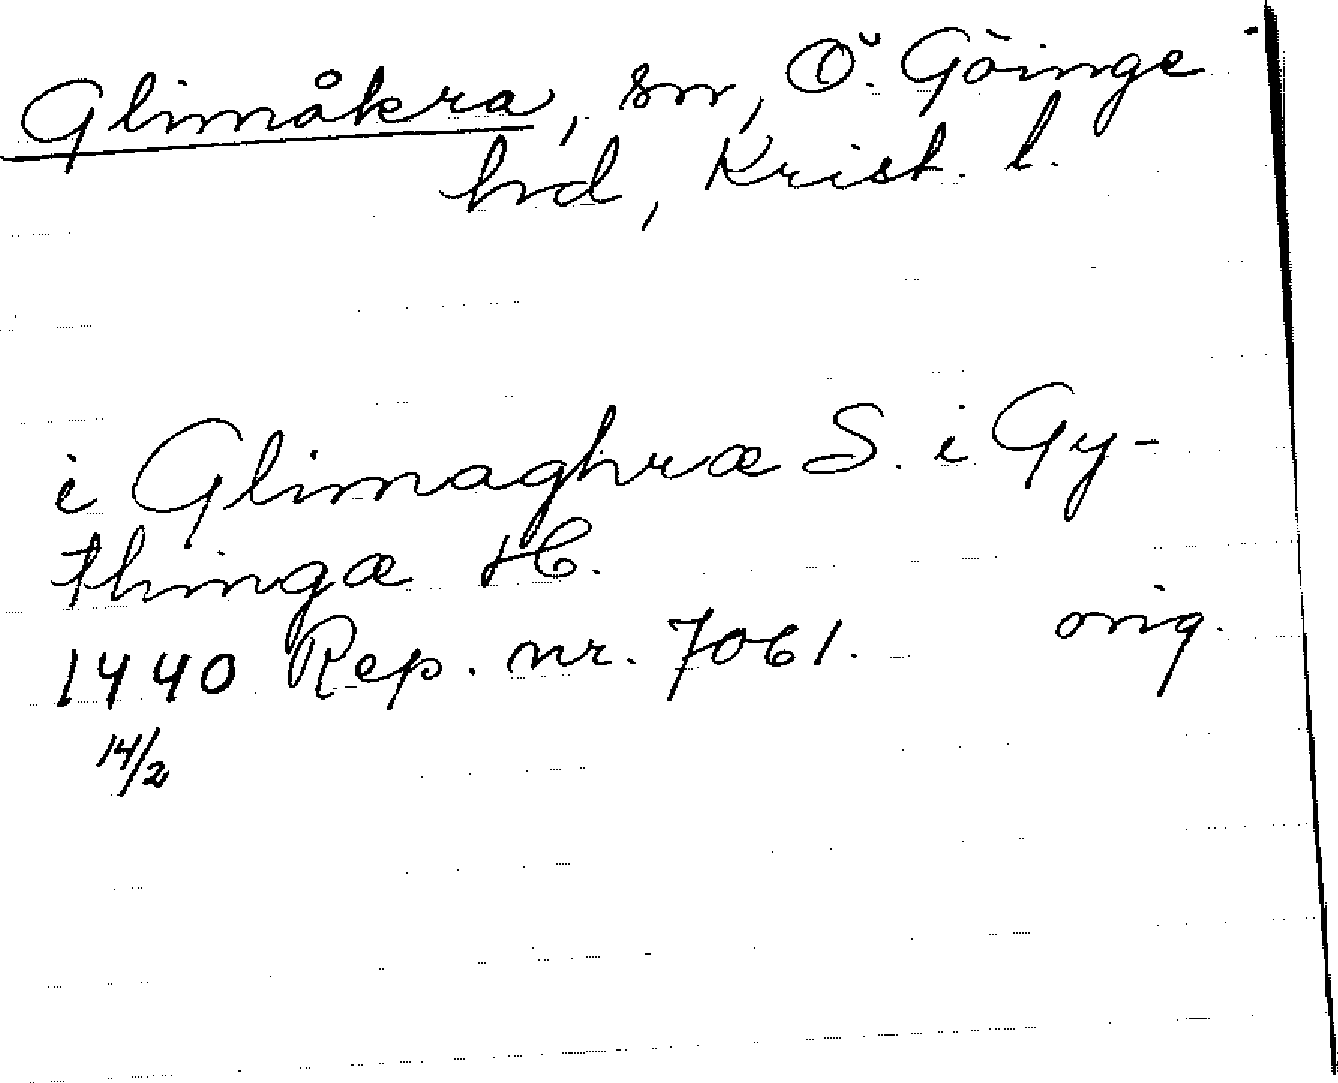 Glimåkra, sn, Ö. Göinge
hd, Krist. l.
i Glimaghræ S. i Gy-
thingæ H.
1440 Rep. nr. 7061. orig.
14/2